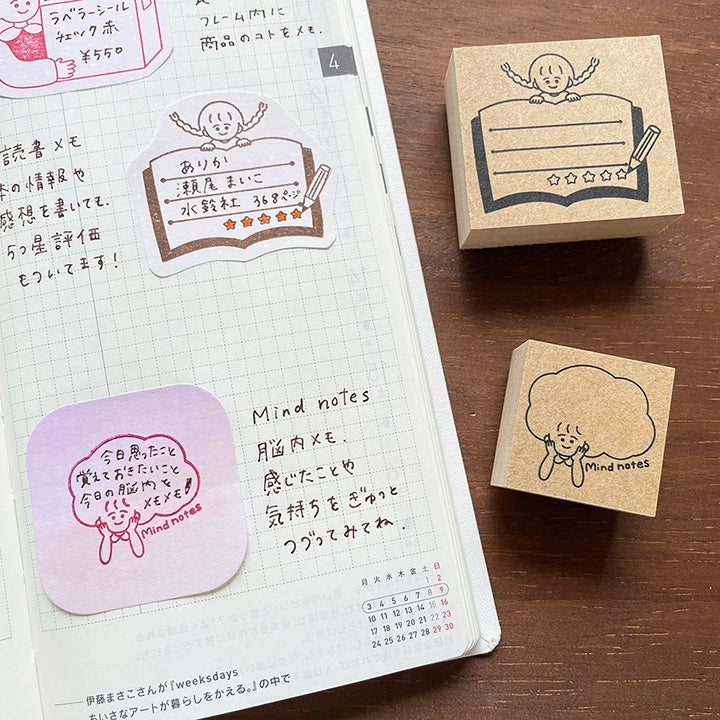 ラベラーシール
チェック 赤
¥550
フレーム内に
商品のコトをメモ.
4
読書メモ
本の情報や
感想を書いても.
5つ星評価
もついてます!
ありか
瀬尾 まいこ
水鈴社 368ページ
今日思ったこと
覚えておきたいこと
今日の脳内を
メモメモ
Mind notes
Mind notes
脳内メモ.
感じたことや
気持ちをぎゅっと
つづってみてね.
Mind notes
月 火 水 木 金 土 日
1 2
3 4 5 6 7 8 9
10 11 12 13 14 15 16
17 18 19 20 21 22 23
24 25 26 27 28 29 30
伊藤まさこさんが『weeksdays
ちいさなアートが暮らしをかえる。』の中で